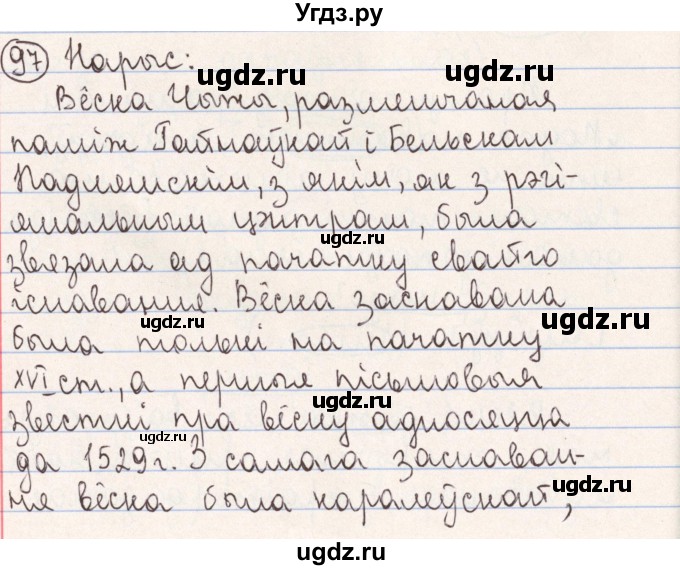 Угдз.ру
97 Нарыс:
ugdz.ru ugdz.ru
Вёска Чыжы, размешчаная
паміж Гайнаўкай і Бельскам
Падляшскім, з якім, як з рэгі-
ugdz.ru
янальным цэнтрам, была
ugdz.ru
звязана ад пачатку свайго
існавання. Вёска заснавана
ugdz.ru ugdz.ru
была толькі на пачатку
XVI ст., а першыя пісьмовыя
звесткі пра вёску адносяцца
ugdz.ru
да 1529 г. З самага заснаван-
ugdz.ru
ня вёска была каралеўскай,
ugdz.ru